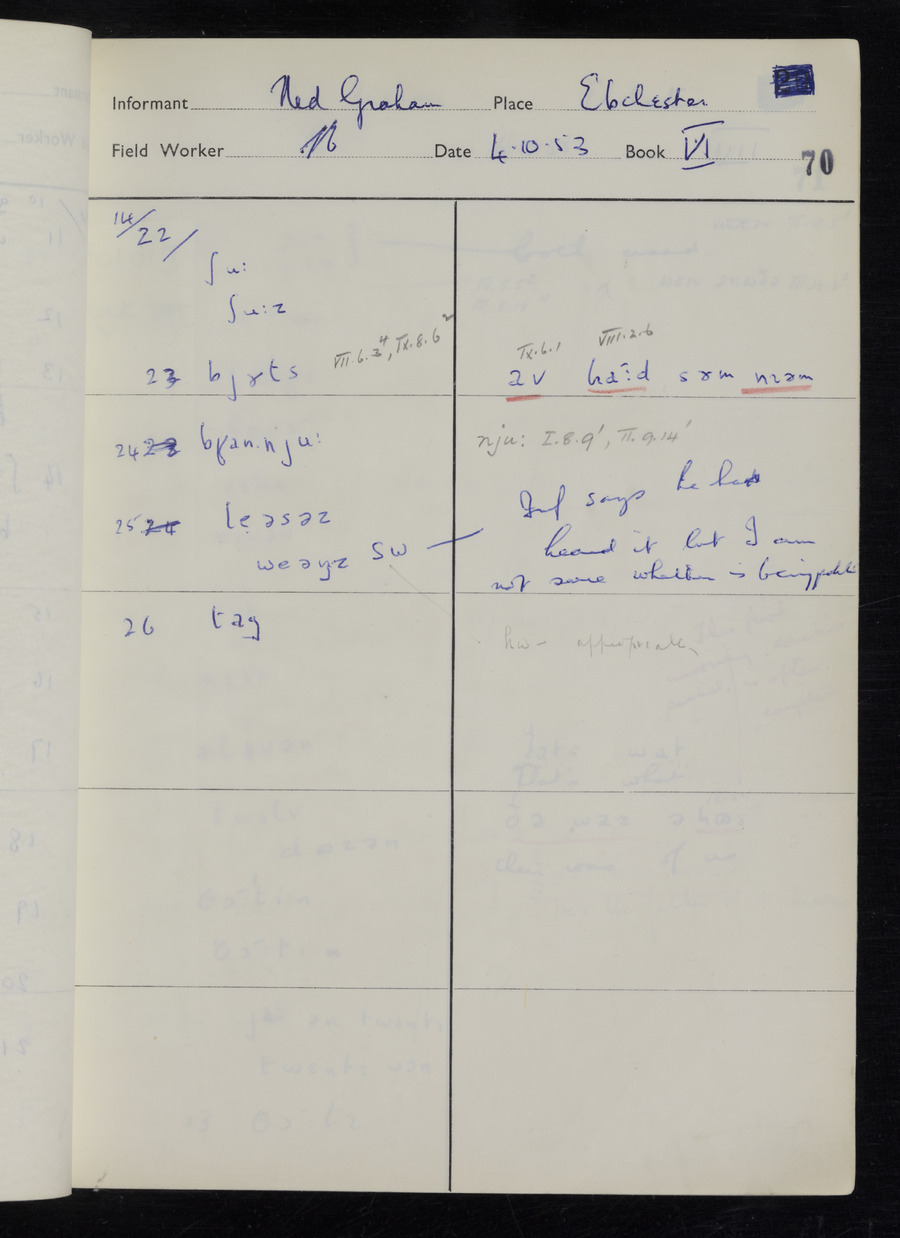 Informant Ned Graham Place Ebchester
Field Worker Date 4.10.53 Book VI
70
14/22/
ʃu:
ʃu:z
23 bjɤts VII.6.3⁴, IX.8.6²
IX.6.1 VIII.2.6
av ha:d sɤm
24 nju:
nju: I.8.9', II.9.14'
25 leəsəz
Inf says he has
sw heard it but I am
not sure whether is being polite
26 tag
hw- appropriate